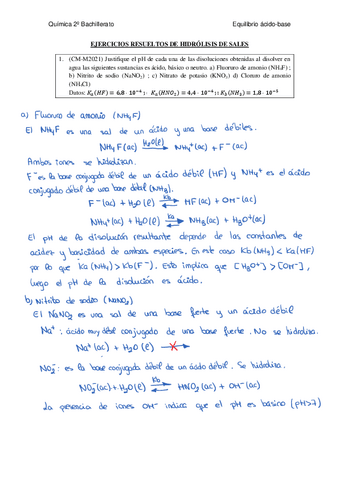 Química 2º Bachillerato Equilibrio ácido-base
EJERCICIOS RESUELTOS DE HIDRÓLISIS DE SALES
1. (CM-M2021) Justifique el pH de cada una de las disoluciones obtenidas al disolver en
agua las siguientes sustancias es ácido, básico o neutro. a) Fluoruro de amonio (NH₄F) ;
b) Nitrito de sodio (NaNO₂) ; c) Nitrato de potasio (KNO₃) d) Cloruro de amonio
(NH₄Cl)
Datos: Kₐ(HF) = 6,8 · 10⁻⁴ ; Kₐ(HNO₂) = 4,4 · 10⁻⁴ ; K_b(NH₃) = 1,8 · 10⁻⁵
a) Fluoruro de amonio (NH₄F)
El NH₄F es una sal de un ácido y una base débiles.
NH₄F(ac) H₂O(l) → NH₄⁺(ac) + F⁻(ac)
Ambos iones se hidrolizan.
F⁻ es la base conjugada débil de un ácido débil (HF) y NH₄⁺ es el ácido
conjugado débil de una base débil (NH₃).
F⁻(ac) + H₂O(l) Kb ⇌ HF(ac) + OH⁻(ac)
NH₄⁺(ac) + H₂O(l) Ka ⇌ NH₃(ac) + H₃O⁺(ac)
El pH de la disolución resultante depende de las constantes de
acidez y basicidad de ambas especies. En este caso Kb(NH₃) < Ka(HF)
por lo que Ka(NH₄⁺) > Kb(F⁻). Esto implica que [H₃O⁺] > [OH⁻],
luego el pH de la disolución es ácido.
b) Nitrito de sodio (NaNO₂)
El NaNO₂ es una sal de una base fuerte y un ácido débil
Na⁺: ácido muy débil conjugado de una base fuerte. No se hidroliza.
Na⁺(ac) + H₂O(l) →
NO₂⁻: es la base conjugada débil de un ácido débil. Se hidroliza.
NO₂⁻(ac) + H₂O(l) Kb ⇌ HNO₂(ac) + OH⁻(ac)
La presencia de iones OH⁻ indica que el pH es básico (pH>7)